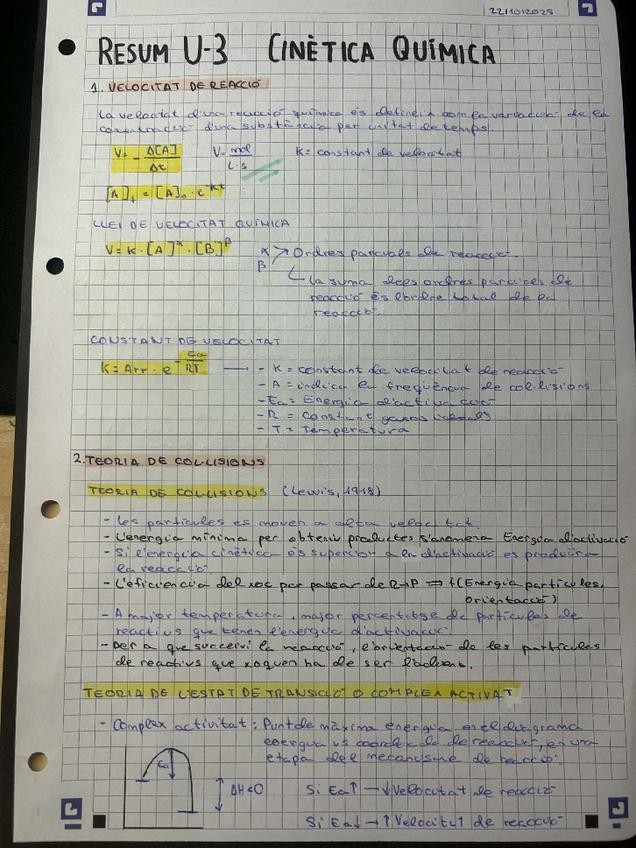 22/10/2025
RESUM U-3 CINÈTICA QUÍMICA
1. VELOCITAT DE REACCIÓ
La velocitat d'una reacció química és defineix com la variació de la
concentració d'una substància per unitat de temps.
V = - Δ[A] / Δt    V = mol / L·s    K = constant de velocitat
[A]t = [A]o · e^-kt
LLEI DE VELOCITAT QUÍMICA
V = K · [A]^α · [B]^β
α β > Ordres parcials de reacció.
La suma dels ordres parcials de
reacció és l'ordre total de la
reacció.
CONSTANT DE VELOCITAT
K = Arr · e^- Ea / RT
- K = constant de velocitat de reacció
- A = indica la freqüència de col·lisions
- Ea = Energia d'activació
- R = Constant gasos ideals
- T = Temperatura
2. TEORIA DE COL·LISIONS
TEORIA DE COL·LISIONS (Lewis, 1918)
- Les partícules es mouen a alta velocitat.
- L'energia mínima per obtenir productes s'anomena Energia d'activació
- Si l'energia cinètica és superior a la d'activació es produeix
la reacció.
- L'eficiència del xoc per passar de R→P ⇒ f(Energia partícules,
orientació)
- A major temperatura, major percentatge de partícules de
reactius que tenen l'energia d'activació.
- Per a que succeixi la reacció, l'orientació de les partícules
de reactius que xoquen ha de ser l'adient.
TEORIA DE L'ESTAT DE TRANSICIÓ O COMPLEX ACTIVAT
- Complex activitat: Punt de màxima energia en el diagrama
energia vs coordenada de reacció, en una
etapa del mecanisme de reacció.
Ea
ΔH<0
Si Ea↑ → ↓Velocitat de reacció
Si Ea↓ → ↑Velocitat de reacció